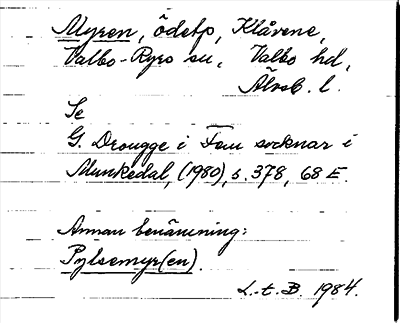 Myren, ödetp, Klåvene,
Valbo-Ryrs sn, Valbo hd,
Älvsb. l.
Se
G. Drougge i Fem socknar i
Munkedal, (1980), s. 378, 68 E.
Annan benämning:
Pylsemyr(en).
L.t.B. 1984.